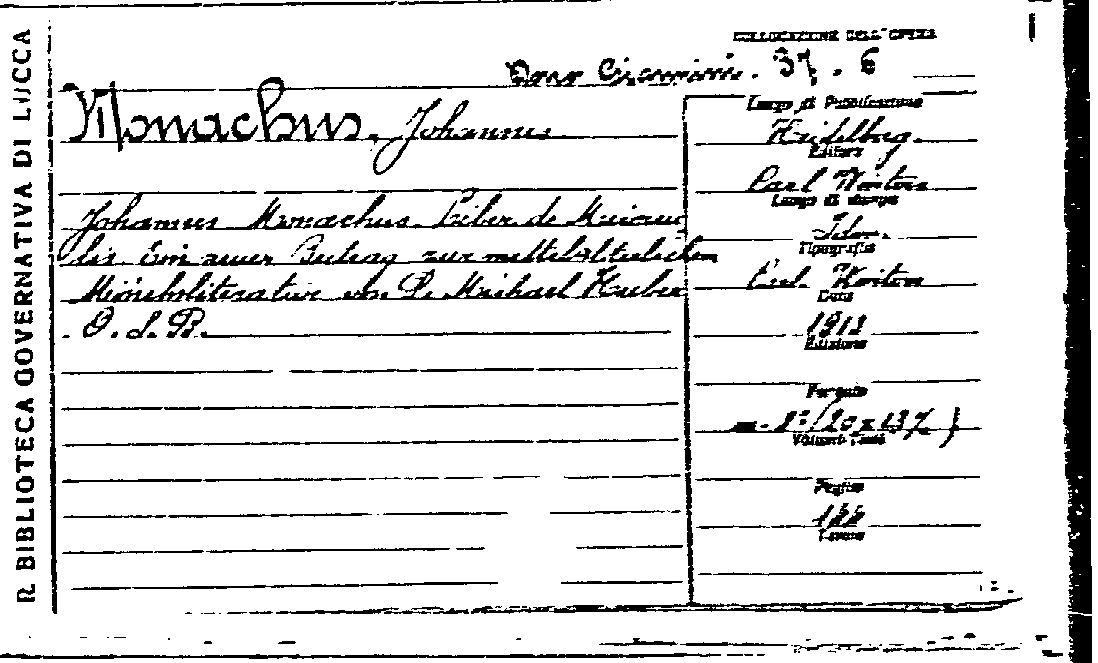 R. BIBLIOTECA GOVERNATIVA DI LUCCA
COLLOCAZIONE DELL'OPERA
37. 6
Monachus, Johannes
Johannes Monachus. Liber de Miracu
lis. Ein neuer Beitrag zur mittelalterlichen
Mönchsliteratur von P. Michael Huber
O. S. B.
Luogo di Pubblicazione
Heidelberg
Editore
Carl Winters
Luogo di stampa
Idem.
Tipografia
Carl Winters
Data
1913
Edizione
Formato
8° (20 x 13½)
Volumi-Tomi
Pagine
Tavole